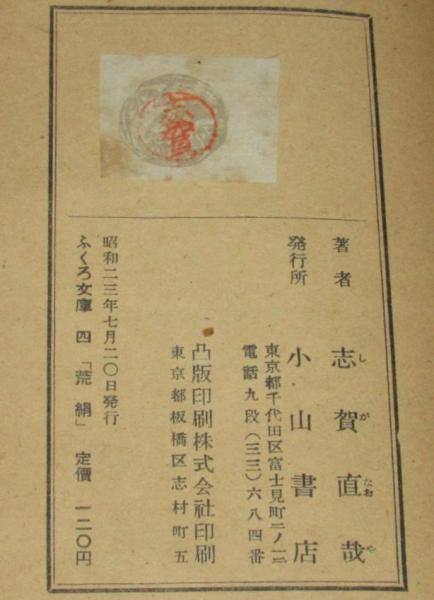 志賀
著者　志賀直哉
しがなおや
発行所　小山書店
東京都千代田区富士見町二ノ一二
電話九段(三三)六八四番
凸版印刷株式会社印刷
東京都板橋区志村町五
昭和二三年七月二〇日発行
ふくろ文庫　四　「荒絹」　定價　一二〇円